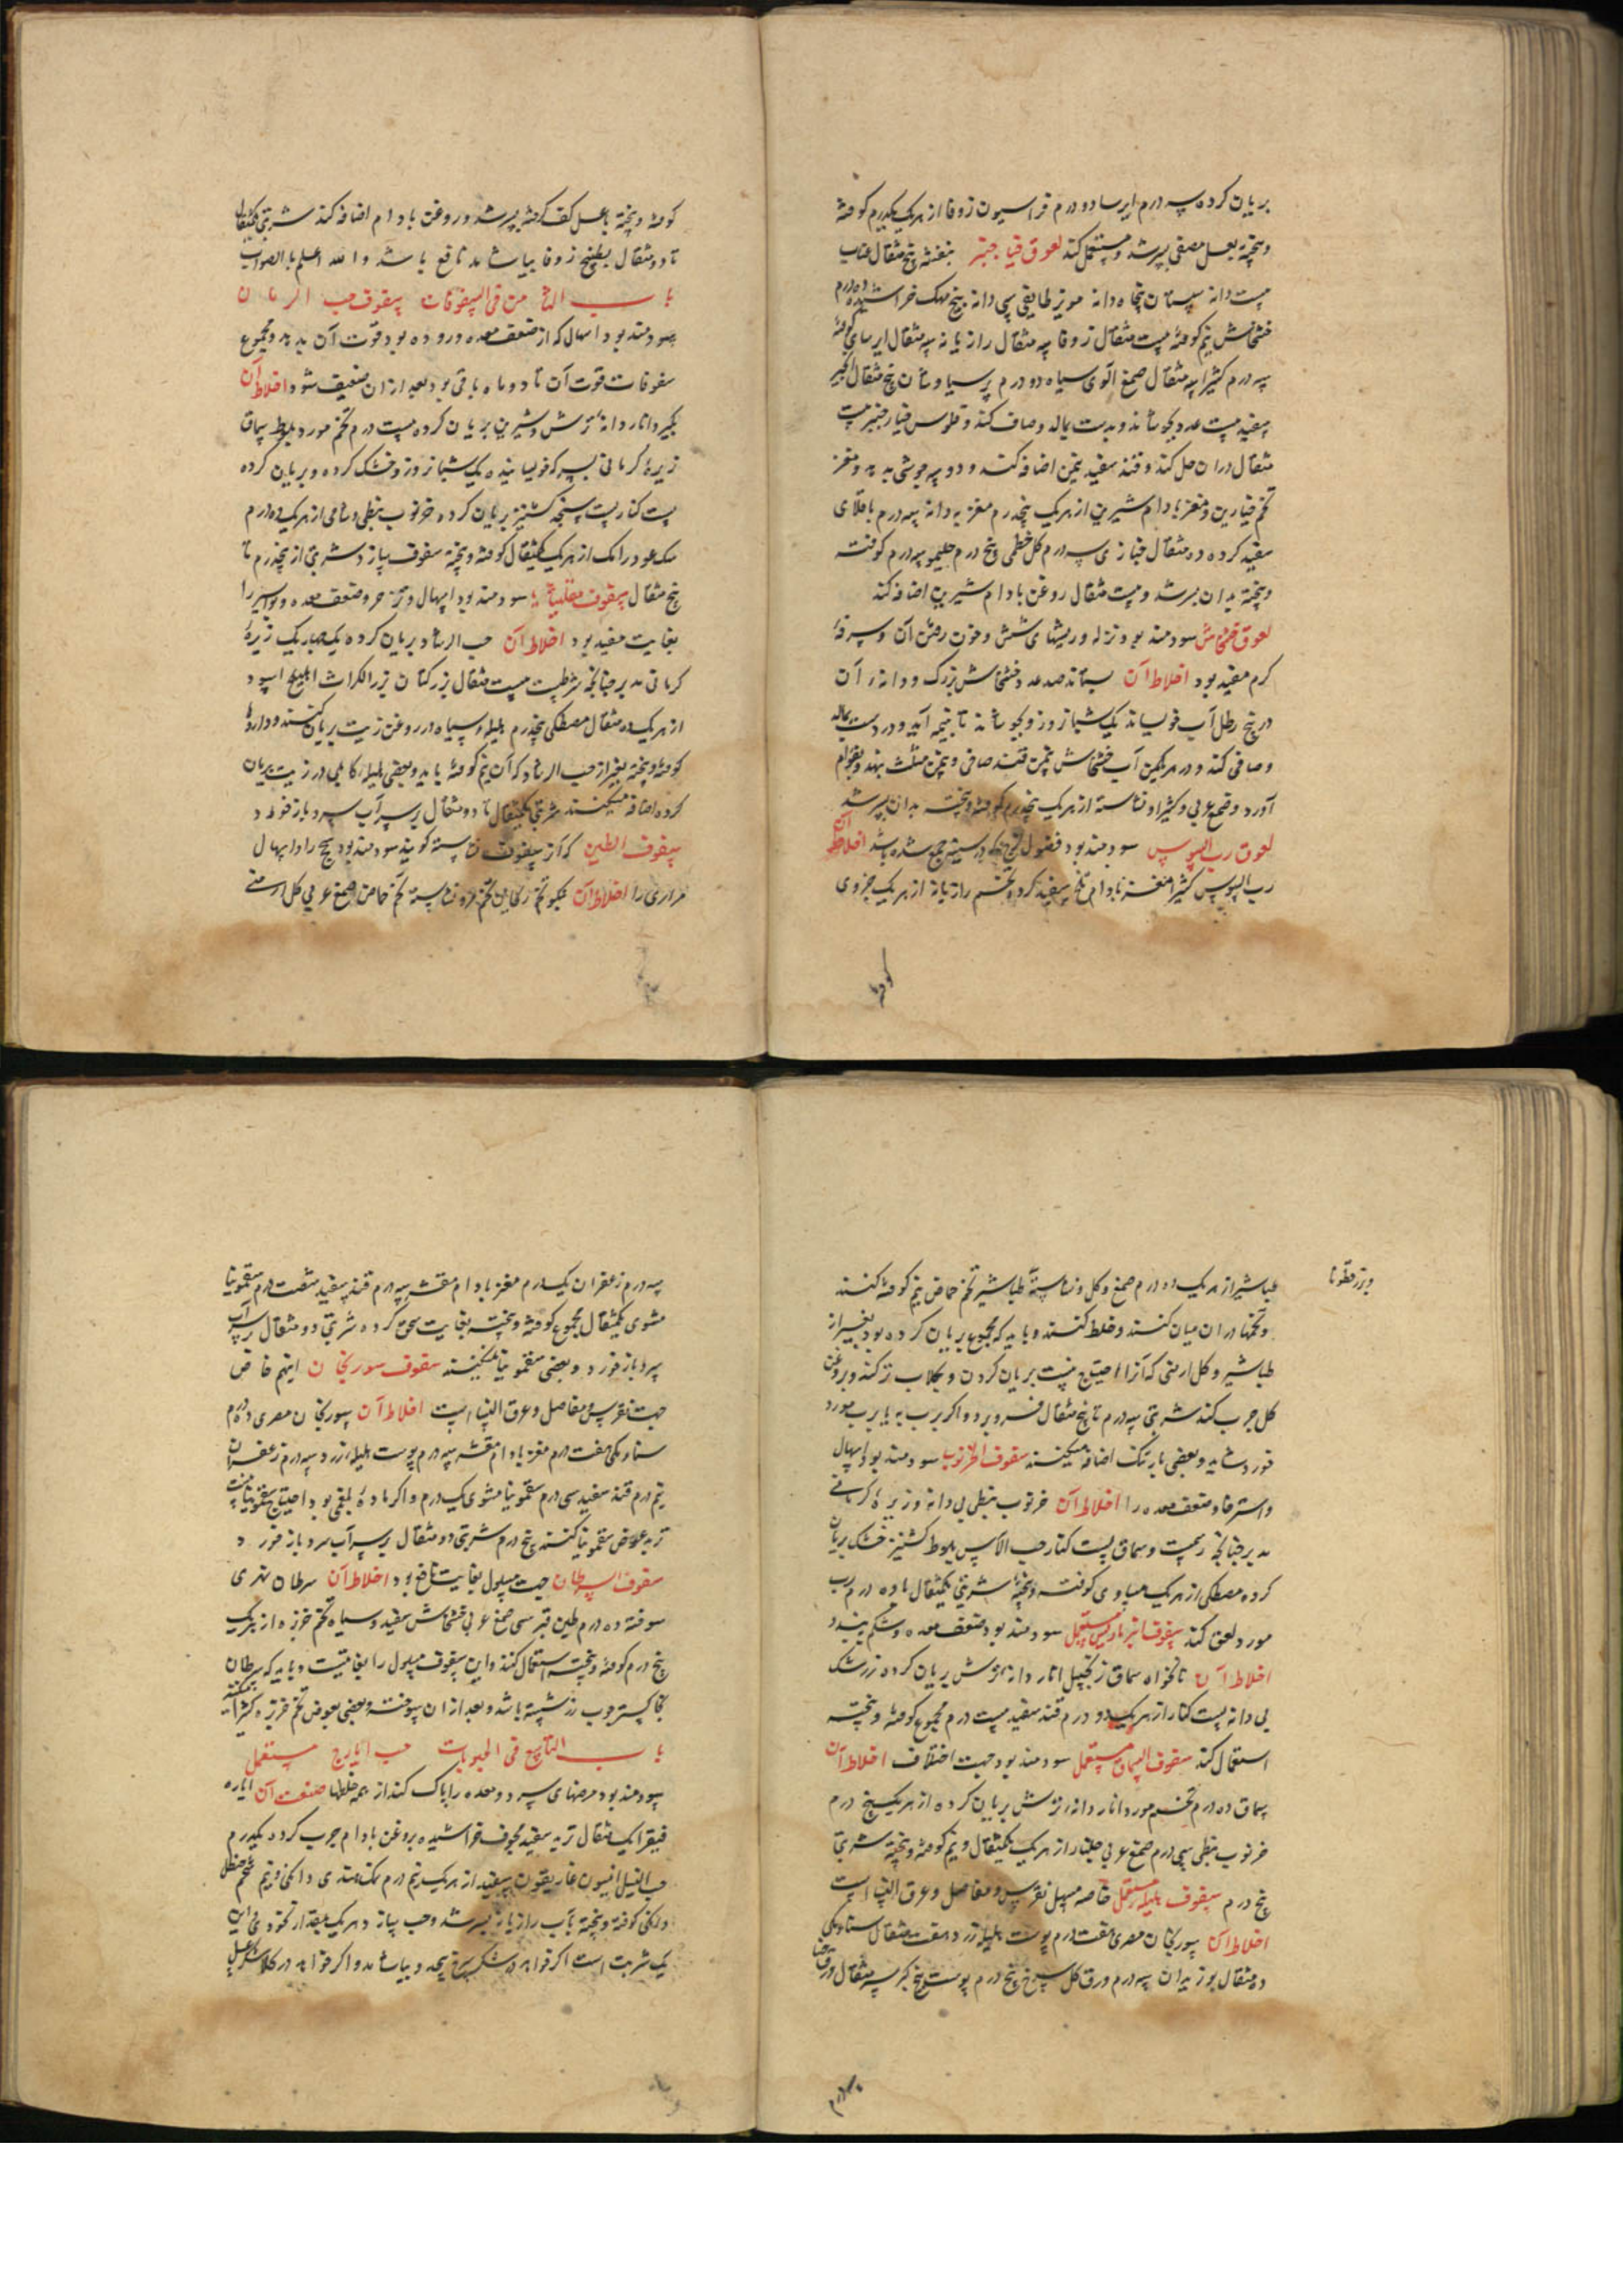 بریان کرده سه درم ایرسا دو درم فراسیون زوفا از هر یک یکدرم کوفته
و بیخته بعسل مصفی بسرشد و مستعمل کند لعوق خیار چنبر بنفشه پنج مثقال عناب
بیست دانه سپستان پنجاه دانه مویز طایفی سی دانه بیخ مهک خراشیده ده درم
خشخاش نیم کوفته بیست مثقال زوفا سه مثقال رازیانه سه مثقال ایرسای کوفته
سه درم کثیرا سه مثقال صمغ آلوی سیاه دو درم پرسیاوشان پنج مثقال انجیر
سفید بیست عدد بجوشاند و بدست بمالد و صاف کند و فلوس خیار چنبر بیست
مثقال دران حل کند و قند سفید یکمن اضافه کند و دو سه جوشی بدهد و مغز
تخم خیارین و مغز بادام شیرین از هر یک پنجدرم مغز به دانه سه درم باقلای
سفید کرده ده مثقال خبازی سه درم کل خطمی پنج درم حلبه سه درم کوفته
و بیخته بدان بسرشد و بیست مثقال روغن بادام شیرین اضافه کند
لعوق خشخاش سودمند بود نزله و ریشهای شش و خون رفتن آن و سرفهٔ
کرم مفید بود اخلاط آن بستاند صد عدد خشخاش بزرک و دانهٔ آن
در پنج رطل آب خویساند یک شبانروز و بجوشاند تا بنیمه آید و در دست بمالد
و صافی کند و در هر یکمن آب خشخاش یکمن قند صافی و یکمن مثلث بنهد و بقوام
آورد و صمغ عربی و کثیرا و نشاسته از هر یک پنجدرم کوفته و بیخته بدان بسرشد
لعوق رب السوس سودمند بود فضول لزج که در سینه جمع شده باشد اخلاط آن
رب السوس کثیرا مغز بادام تلخ سفید کرده تخم رازیانه از هر یک جزوی
کوفته و بیخته با عسل کف گرفته بسرشد و روغن بادام اضافه کند شربتی یکمثقال
تا دو مثقال بطبیخ زوفا بیاشامد نافع باشد و الله اعلم بالصواب
باب الثامن فی السفوفات سفوف حب الرمان
سودمند بود اسهال که از ضعف معده و روده بود و قوت آن بدهد و مجموع
سفوفات قوت آن تا دو ماه باقی بود بعد از ان ضعیف شود اخلاط آن
بگیرد انار دانهٔ ترش و شیرین بریان کرده بیست درم تخم مورد بلوط سماق
زیرهٔ کرمانی بسرکه خویسانیده یک شبانروز و خشک کرده و بریان کرده
پست کنار پست سنجد کشنیز بریان کرده خرنوب نبطی و شامی از هر یک ده درم
سک عود رامک از هر یک یکمثقال کوفته و بیخته سفوف سازد شربتی از پنجدرم تا
پنج مثقال سفوف مقلیاثا سودمند بود اسهال و زحیر و ضعف معده و بواسیر را
بغایت مفید بود اخلاط آن حب الرشاد بریان کرده یک چهاریک زیرهٔ
کرمانی مدبر چنانچه شرطست بیست مثقال بزر کتان بزر الکراث اهلیلج اسود
از هر یک ده مثقال مصطکی پنجدرم هلیلهٔ سیاه در روغن زیت بریان کنند و داروها
کوفته و بیخته بغیر از حب الرشاد که آن نیم کوفته باید و بعضی هلیلهٔ کابلی در زیت بریان
کرده اضافه میکنند شربتی یکمثقال تا دو مثقال بر سر آب سرد باز خورد
سفوف الطین که آنرا سفوف نشاسته گویند سودمند بود سحج را و اسهال
مراری را اخلاط آن بنکو تخم ریحان تخم مرو نشاسته تخم حماض صمغ عربی کل ارمنی
و بزر قطونا
طباشیر از هر یک ده درم صمغ و کل و نشاسته طباشیر تخم حماض نیم کوفته کنند
و تخمها دران میان کنند و خلط کنند و باید که مجموع بریان کرده بود بغیر از
طباشیر و کل ارمنی که آنرا احتیاج نیست بریان کردن و بکلاب تر کند و بروغن
کل چرب کند شربتی سه درم تا پنج مثقال فرو برد و اگر برب به یا برب مورد
خورد شاید و بعضی بارتنگ اضافه میکنند سفوف الخرنوب سودمند بود اسهال
و استرخا و ضعف معده را اخلاط آن خرنوب نبطی بی دانه و زیرهٔ کرمانی
مدبر چنانچه رسمست و سماق پست کنار حب الآس بلوط کشنیز خشک بریان
کرده مصطکی از هر یک مساوی کوفته و بیخته شربتی یکمثقال با ده درم رب
مورد لعق کند سفوف انبرباریس مستعمل سودمند بود ضعف معده و شکم ببندد
اخلاط آن نانخواه سماق زنجبیل انار دانه ترش بریان کرده زرشک
بی دانه پست کنار از هر یک دو درم قند سفید بیست درم مجموع کوفته و بیخته
استعمال کند سفوف السماق مستعمل سودمند بود جهت اختلاف اخلاط آن
سماق ده درم تخم مورد انار دانهٔ ترش بریان کرده از هر یک پنج درم
خرنوب نبطی سی درم صمغ عربی جلنار از هر یک یکمثقال و نیم کوفته و بیخته شربتی
پنج درم سفوف هلیله مستعمل خاصه مسهل نقرس و مفاصل و عرق النسا است
اخلاط آن سورنجان مصری هفت درم پوست هلیلهٔ زرد هفت مثقال سناء مکی
ده مثقال بوزیدان سه درم ورق کل سرخ پنج درم پوست بیخ کبر سه مثقال ورق حنا
سه درم زعفران یک درم مغز بادام مقشر سه درم قند سفید شصت درم سقمونیا
مشوی یکمثقال مجموع کوفته و بیخته بغایت سحق کرده شربتی دو مثقال بر سر آب
سرد باز خورد و بعضی سقمونیا نمیکنند سفوف سورنجان اینهم خاص
جهت نقرس و مفاصل و عرق النسا است اخلاط آن سورنجان مصری ده درم
سناء مکی هفت درم مغز بادام مقشر سه درم پوست هلیلهٔ زرد سه درم زعفران
نیم درم قند سفید سی درم سقمونیا مشوی یک درم و اگر مادهٔ بلغمی بود احتیاج سقمونیا نیست
تربد عوض سقمونیا کنند پنج درم شربتی دو مثقال بر سر آب سرد باز خورد
سفوف السرطان جهت مسلول بغایت نافع بود اخلاط آن سرطان نهری
سوخته ده درم طین قبرسی صمغ عربی خشخاش سفید و سیاه تخم خرفه از هر یک
پنج درم کوفته و بیخته استعمال کنند و این سفوف مسلول را بغایتست و باید که سرطان
بخاکستر چوب رز شسته باشد و بعد از ان سوخته و بعضی بعوض تخم خرفه کثیرا میکنند
باب التاسع فی الحبوبات حب ایارج مستعمل
سودمند بود مرضهای سرد و معده را پاک کند از همه خلطها صنعت آن ایاره
فیقرا یک مثقال تربد سفید مجوف خراشیده بروغن بادام چرب کرده یکدرم
حب النیل افیسون غاریقون سفید از هر یک نیم درم نمک هندی دانکی و نیم شحم حنظل
دانکی کوفته و بیخته بآب رازیانه بسرشد و حب سازد هر یک بمقدار نخودی و این
یک شربت است اگر خواهد در شکر سرخ پیچد و بیاشامد و اگر خواهد در کلاشکر